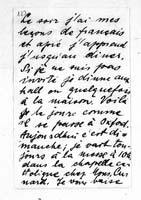 Le soir j'ai mes
leçons de français
et aprè j'apprend
jusqu'au diner,
Si je ne suis pas
invité je dinne au
hall ou quelquefois
à la maison. Voilà
le journé comme
il se passe à Oxford.
Aujourdhui c'est di-
manche; je vait tou-
jours à la messe à 10h
dans la chapelle ca-
tolique chez Mons.
Je vous baise